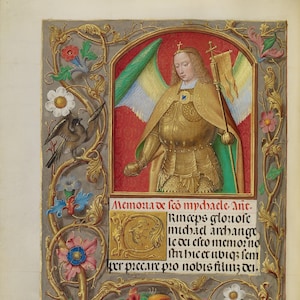 Memoria de sc̄o mychaele. Añt.
Princeps gloriose
michael archange
le dei esto memor no
stri hic et ubiqz sem
per precare pro nobis filiuz dei.